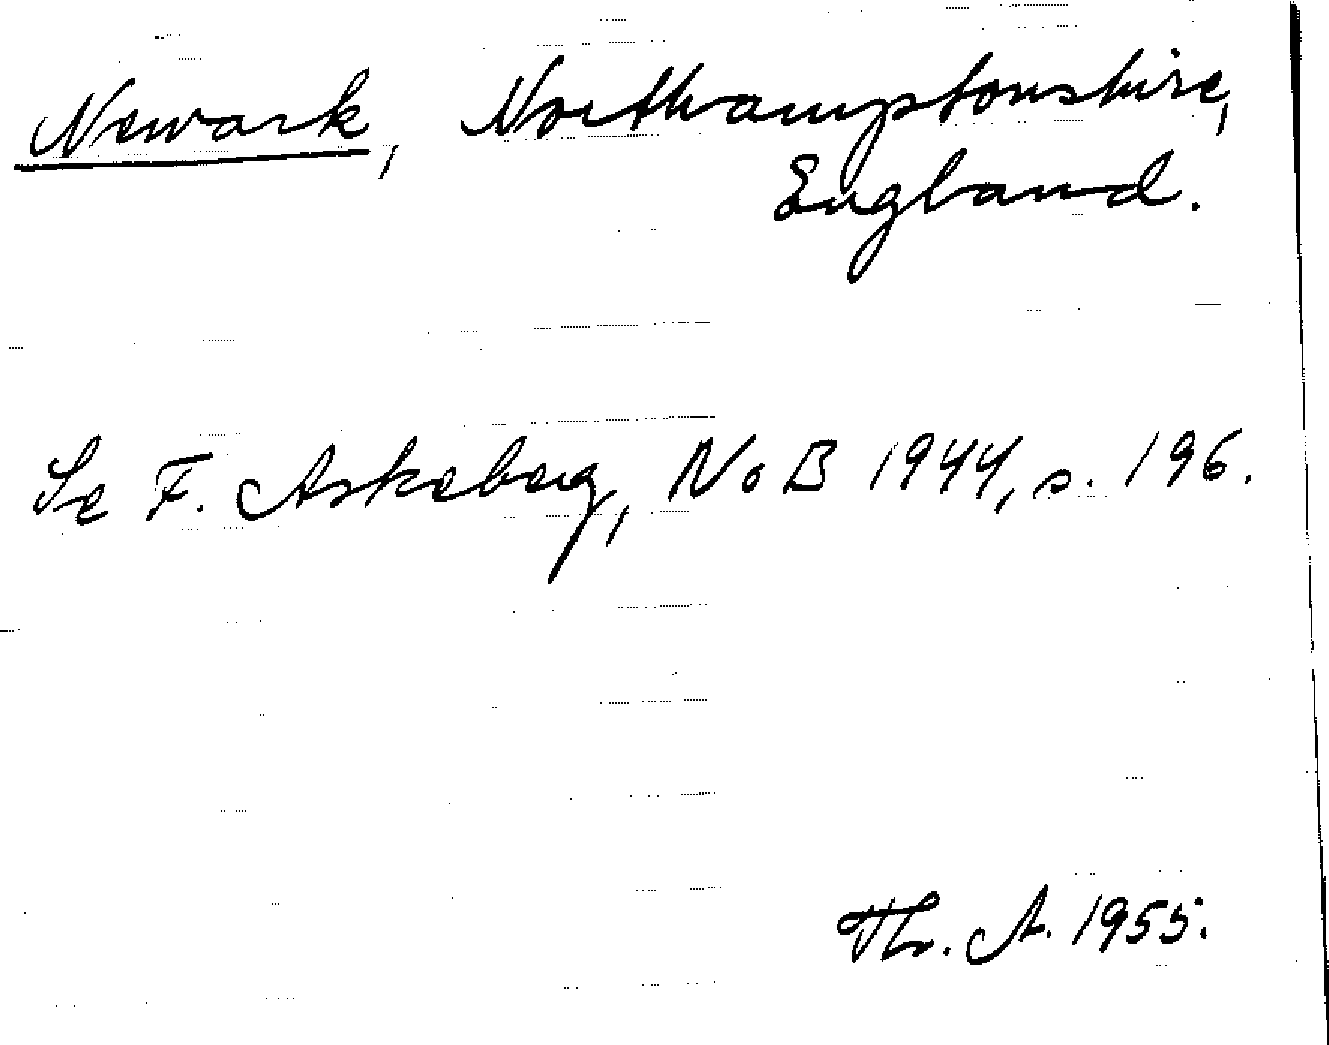 Newark, Northamptonshire,
England.
Se F. Askeberg, NoB 1944, s. 196.
Th. A. 1955.